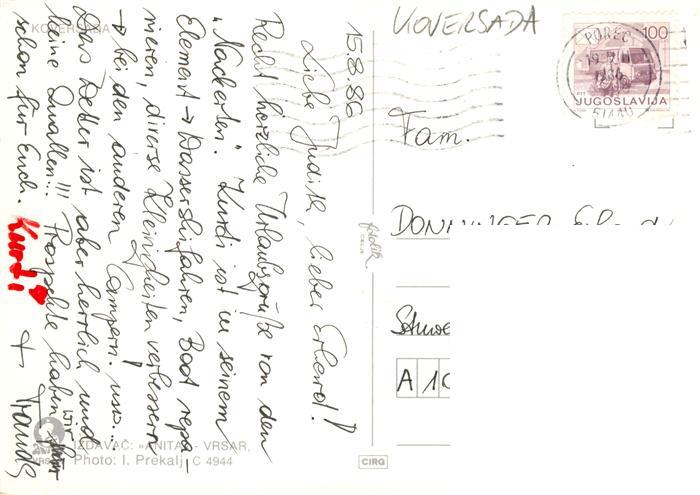 KOVERSADA
15.8.86
Liebe Judith, lieber Erhard!
Recht herzliche Urlaubsgrüße von den
"Nackerten". Kurdi ist in seinem
Element → Wasserskifahren, Boot repa-
rieren, diverse Kleinigkeiten verbessern
→ bei den anderen Campern. usw...
Das Wetter ist aber herrlich und
keine Quallen!!! Prospekte haben wir
schon für Euch. Kurdi + Traude
KOVERSADA
IZDAVAČ: »ANITA« - VRSAR,
Photo: I. Prekalj C 4944
CIRG
POREČ
100
PTT
JUGOSLAVIJA
Fam.
DONNINGER
A 10